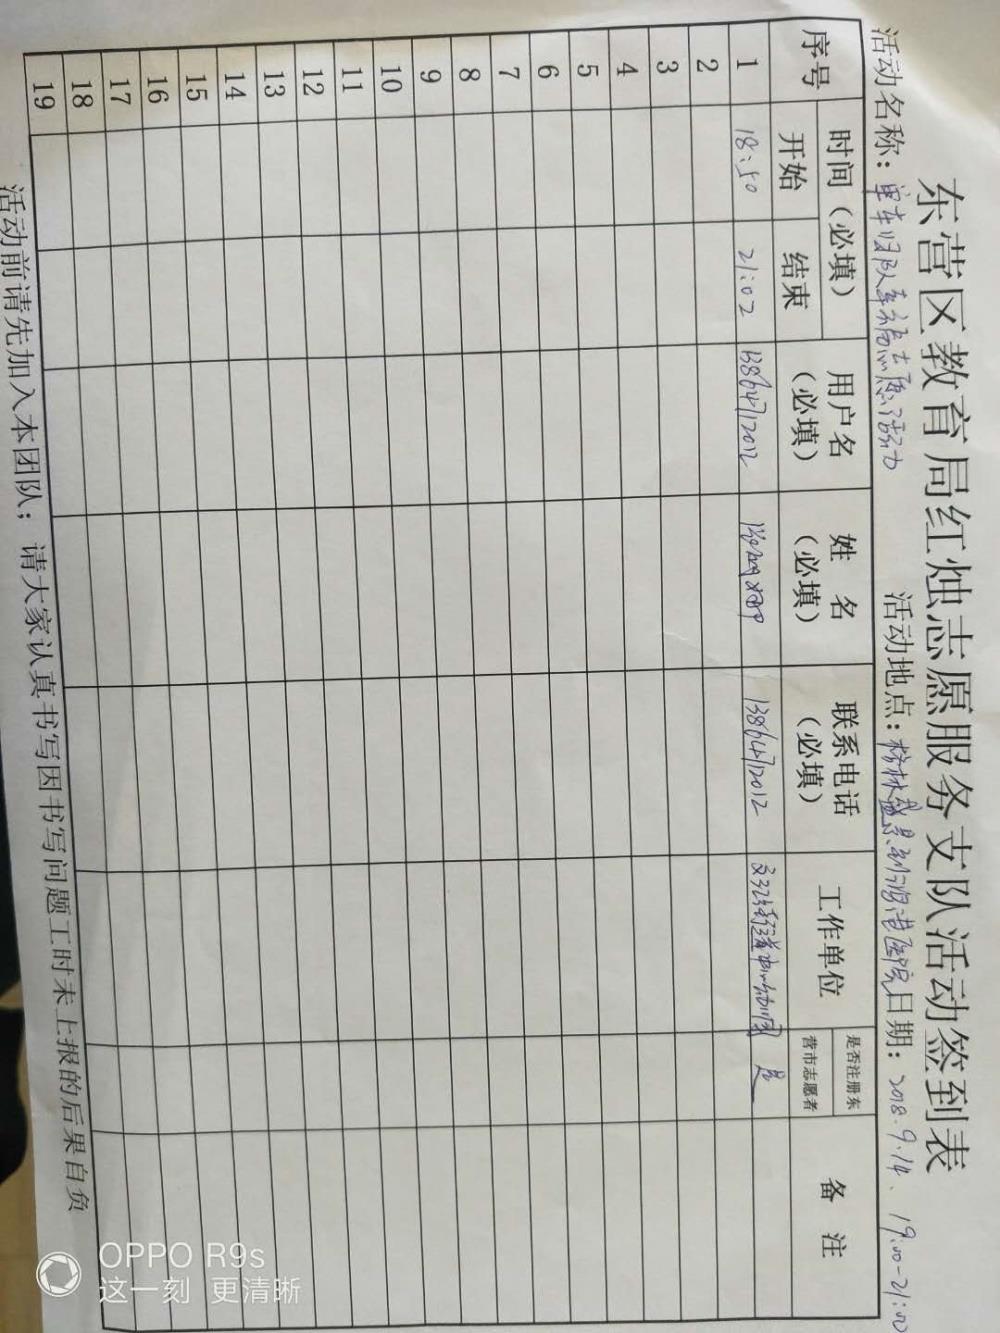 东营区教育局红烛志愿服务支队活动签到表
活动名称：单车归队幸福志愿活动 活动地点：医院 日期：2018.9.14、19:00-21:00
序号 时间（必填） 用户名（必填） 姓 名（必填） 联系电话（必填） 工作单位 是否注册东营市志愿者 备 注
开始 结束
1 18:50 21:02 13864712012 13864712012 是
2
3
4
5
6
7
8
9
10
11
12
13
14
15
16
17
18
19
活动前请先加入本团队；请大家认真书写因书写问题工时未上报的后果自负
OPPO R9s
这一刻 更清晰